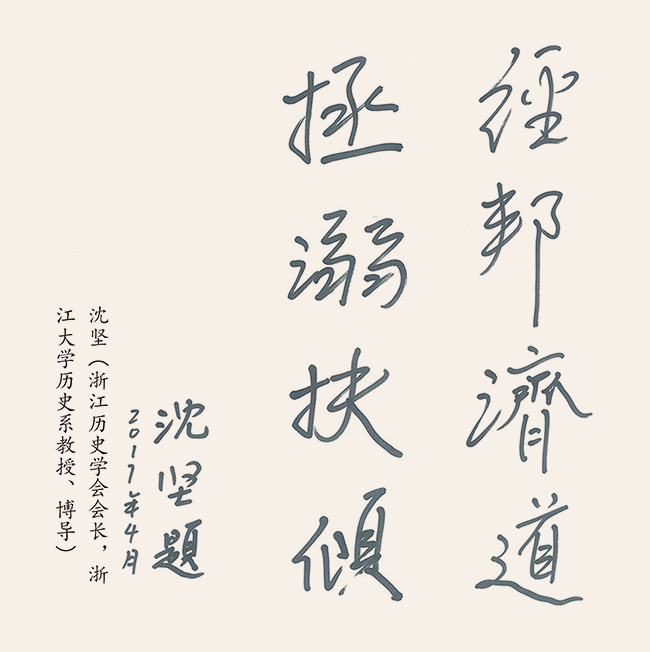 經邦濟道
拯溺扶傾
沈坚題
2017年4月
沈坚（浙江历史学会会长，浙
江大学历史系教授、博导）